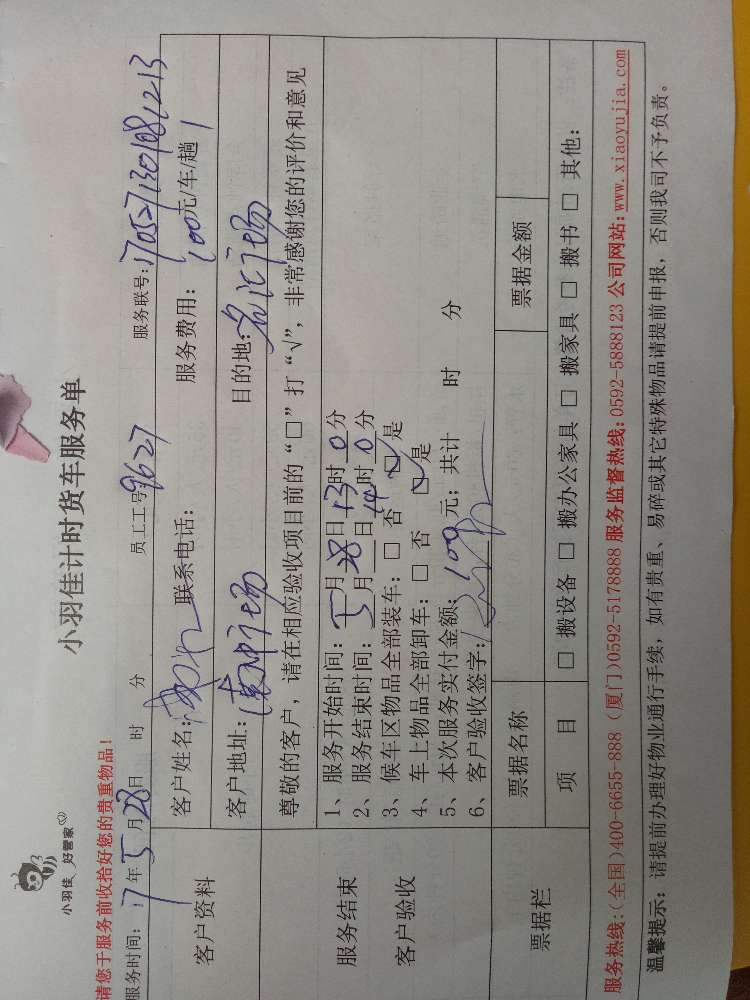 小羽佳 好管家
小羽佳计时货车服务单
请您于服务前收拾好您的贵重物品！
服务时间：17年5月28日 时 分 员工工号：9627 服务联号：170527130108121213
客户资料
客户姓名： 联系电话： 服务费用：100元/车/趟
客户地址： 广场 目的地： 广场
服务结束
客户验收
尊敬的客户，请在相应验收项目前的“□”打“√”，非常感谢您的评价和意见
1、服务开始时间：5月28日13时0分
2、服务结束时间：5月 日14时0分
3、候车区物品全部装车：□ 否 ☑ 是
4、车上物品全部卸车：□ 否 ☑ 是
5、本次服务实付金额：100元；共计 时 分
6、客户验收签字：
票据栏
票据名称 票据金额
项 目 □ 搬设备 □ 搬办公家具 □ 搬家具 □ 搬书 □ 其他：
服务热线：(全国)400-6655-888（厦门)0592-5178888 服务监督热线：0592-5888123 公司网站：www.xiaoyujia.com
温馨提示：请提前办理好物业通行手续，如有贵重、易碎或其它特殊物品请提前申报，否则我司不予负责。